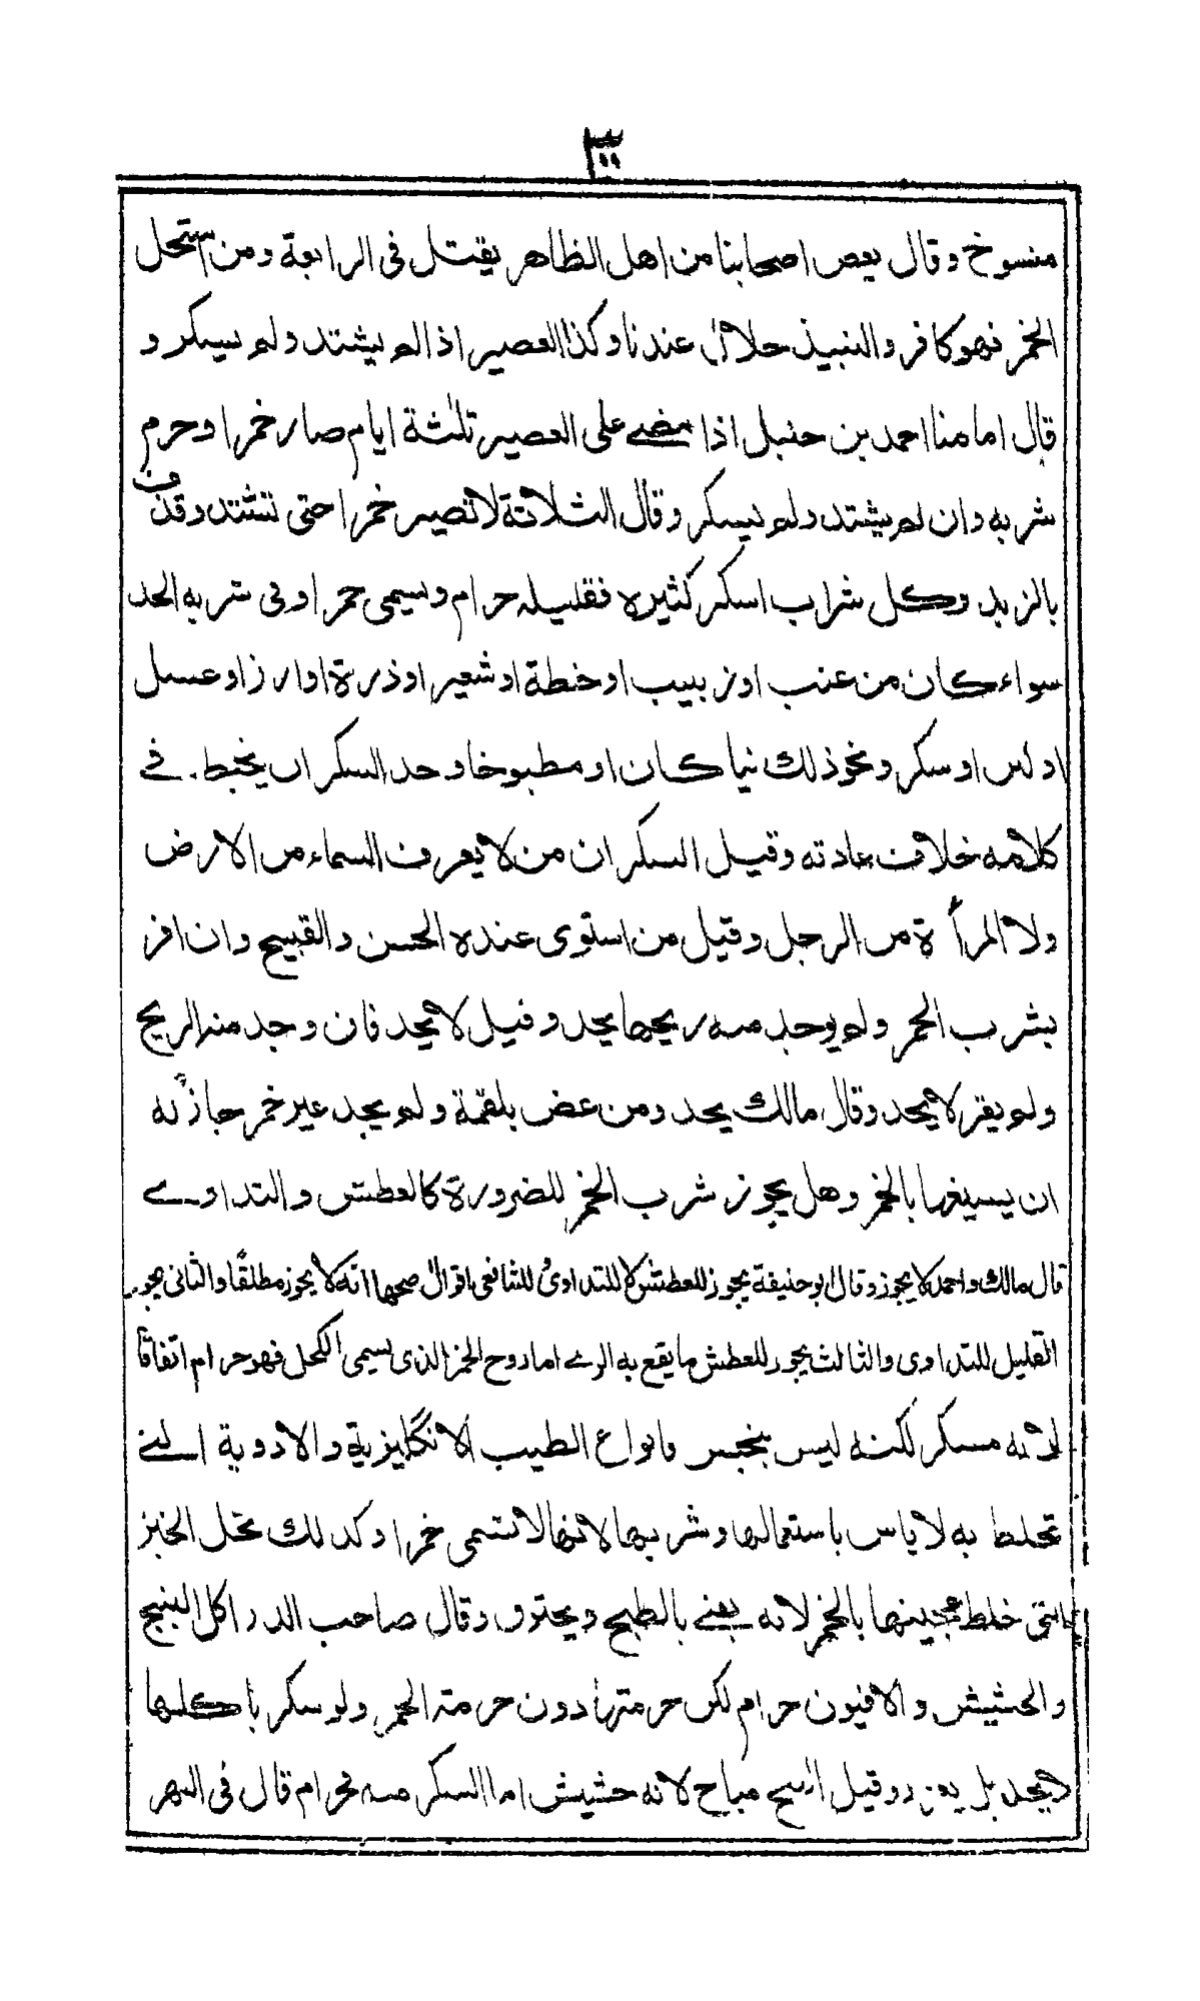 منسوخ وقال بعض اصحابنا من اهل الظاهر يقتل فى الرابعة ومن استحل
الخمر فهو كافر والنبيذ حلال عندنا وكذا العصير اذا لم يشتد ولم يسكر و
قال امامنا احمد بن حنبل اذا مضے على العصير ثلثة ايام صار خمرا وحرم
شربه وان لم يشتد ولم يسكر وقال الثلاثة لا تصير خمرا حتى تشتد وقذف
بالزبد وكل شراب اسكر كثيره فقليله حرام ويسمى خمرا وفى شربه الحد
سواء كان من عنب او زبيب او حنطة او شعير او ذرة او ارز او عسل
او لبن او سكر ونحو ذلك نيا كان او مطبوخا وحد السكران يخبط فے
كلامه خلاف عادته وقيل السكران من لا يعرف السماء من الارض
ولا المرأة من الرجل وقيل من استوى عنده الحسن والقبيح وان اقر
بشرب الخمر ولم يوجد منه ريحها يحد وقيل لا يحد فان وجد منه الريح
ولم يقر لا يحد وقال مالك يحد ومن غص بلقمة ولم يجد غير خمر جاز له
ان يسيغها بالخمر وهل يجوز شرب الخمر للضرورة كالعطش والتداوے
قال مالك واحمد لا يجوز وقال ابو حنيفة يجوز للعطش لا للتداوى وللشافعى اقوال صحها انه لا يجوز مطلقا والثانى يجوز
القليل للتداوى والثالث يجوز للعطش ما يقع به الرے اما روح الخمر الذى يسمى الكحل فهو حرام اتفاقا
لانه مسكر لكنه ليس بنجس وانواع الطيب الانگليزية والادوية التے
تخلط به لا باس باستعمالها وشربها لانها لا تسمى خمرا وكذلك يحل الخبز
التى خلط عجينها بالخمر لانه يفنے بالطبخ ويحترق وقال صاحب الدر اكل البنج
والحشيش والافيون حرام لكن حرمتها دون حرمته الخمر ولو سكر بأكلها
لا يحد بل يعزر وقيل البنج مباح لانه حشيش اما السكر منه فحرام قال فى النهر